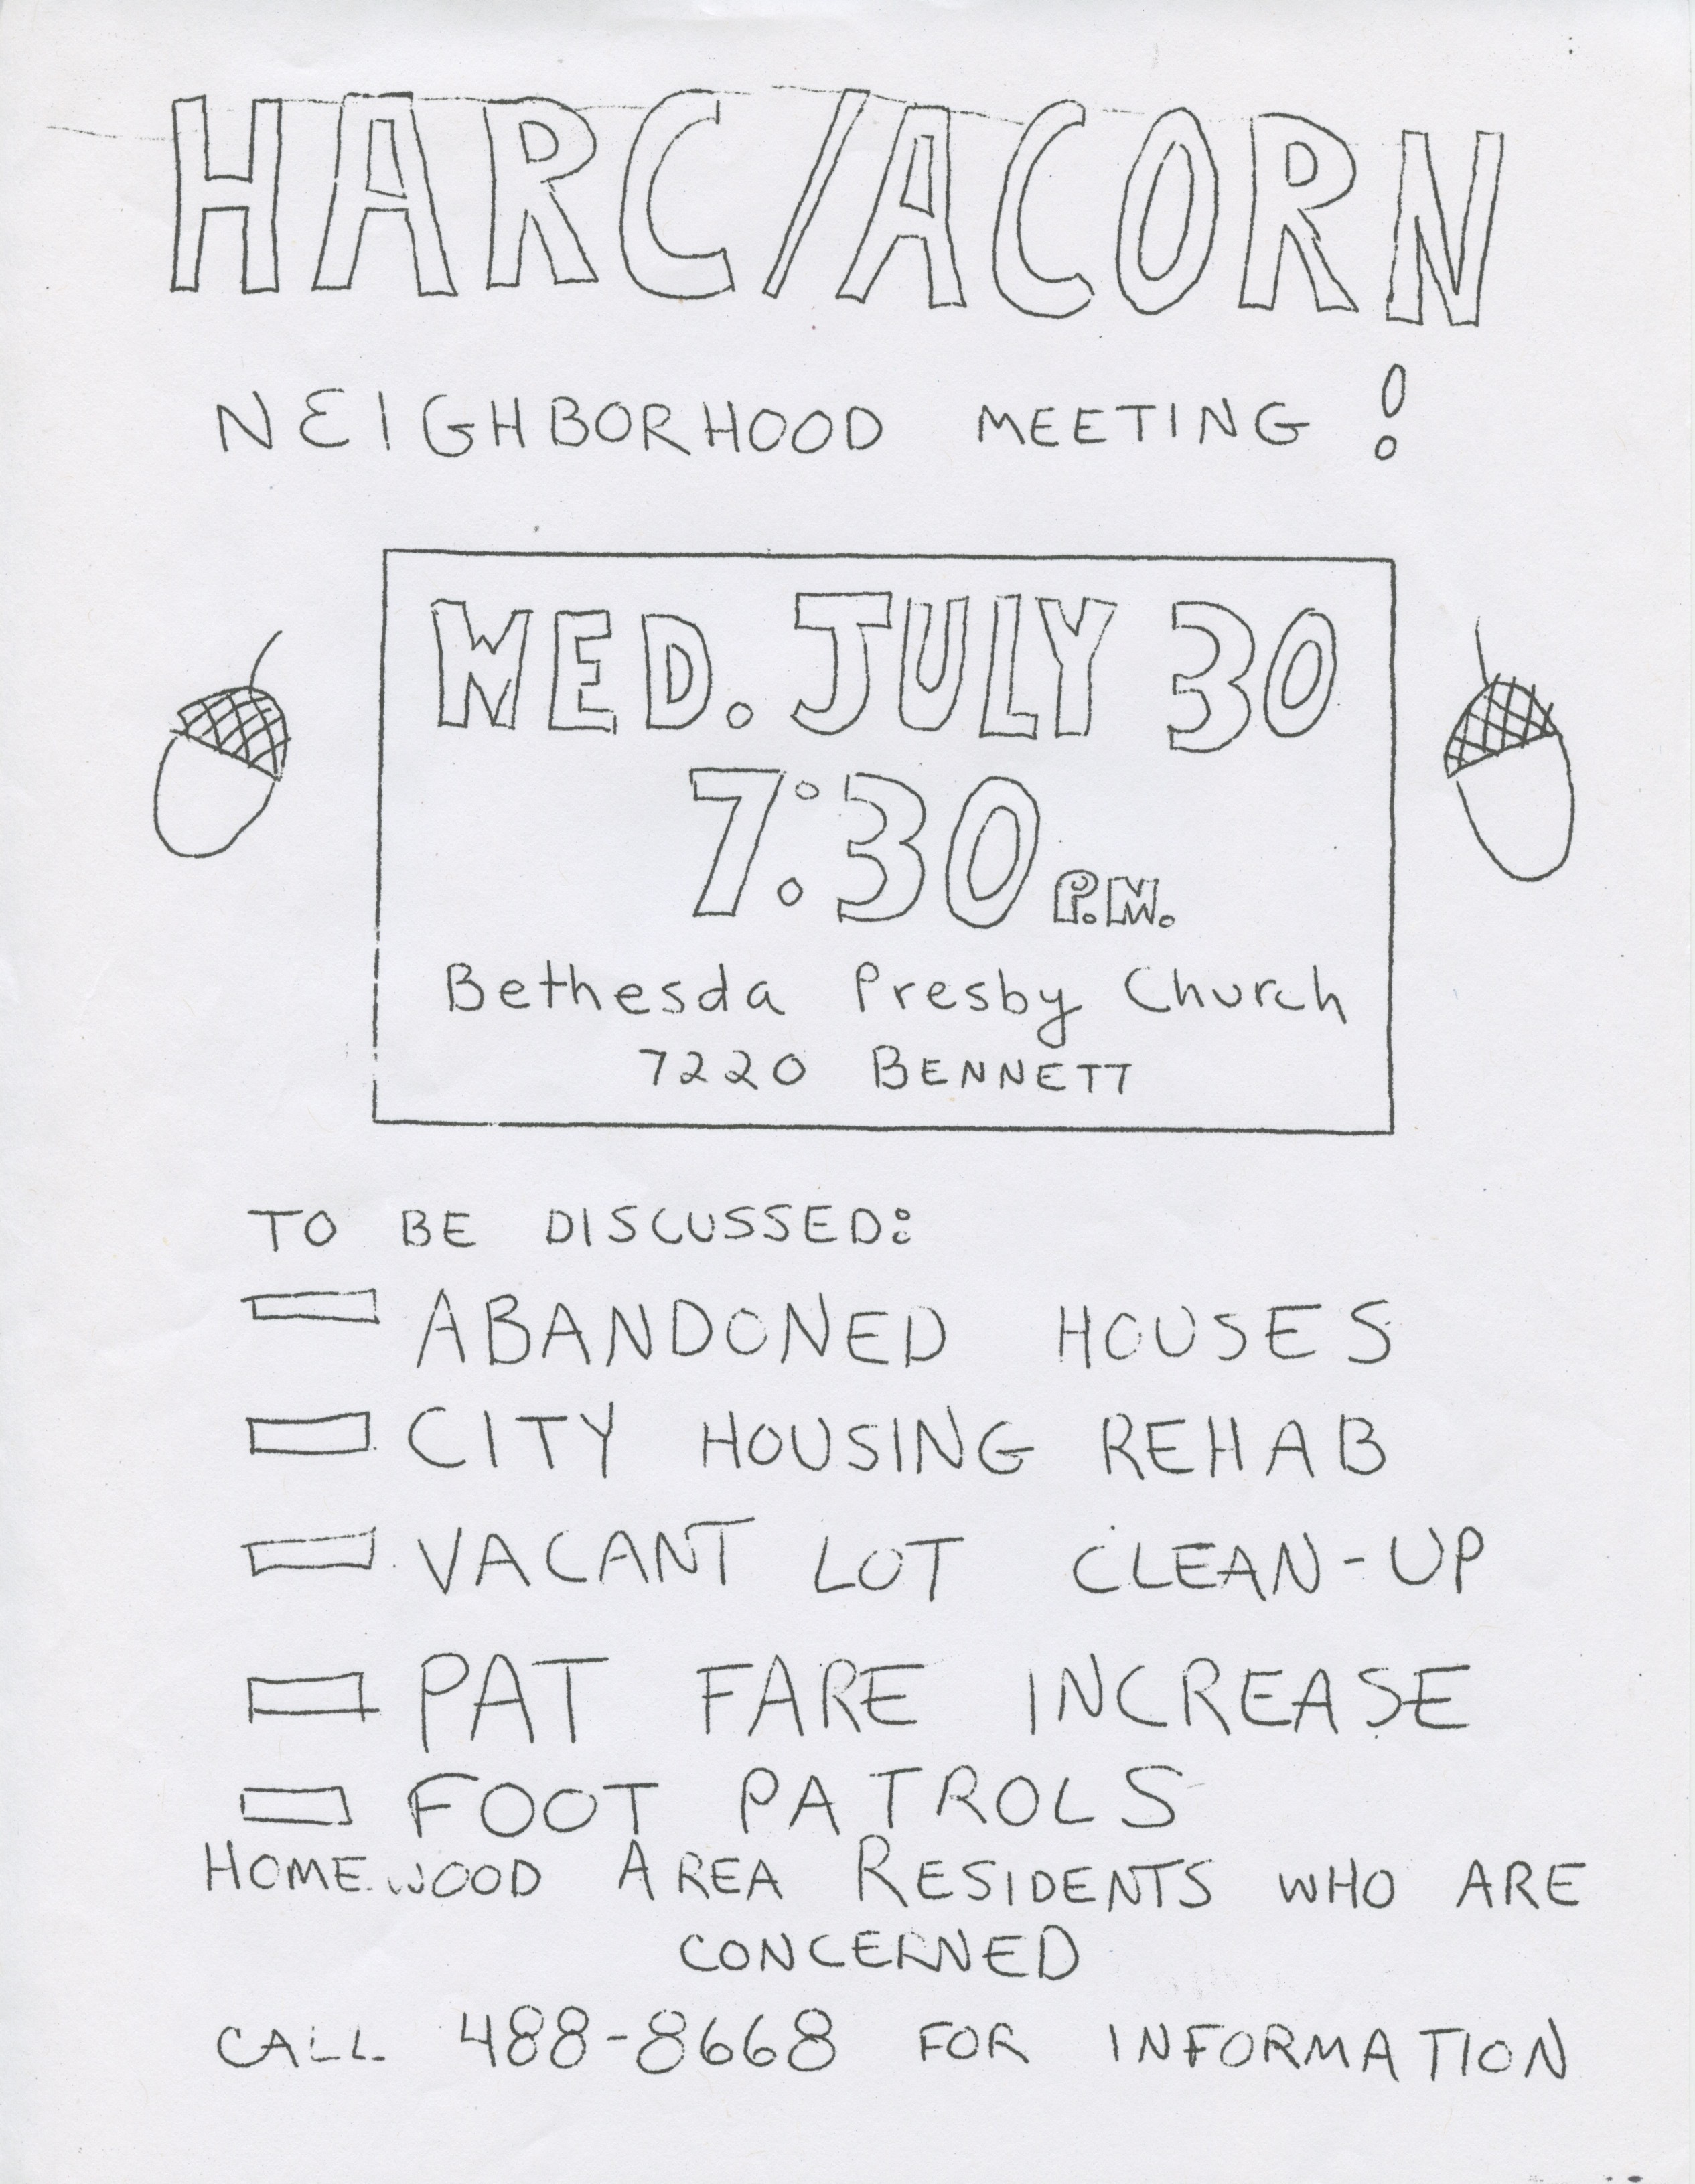 HARC/ACORN
NEIGHBORHOOD MEETING!
WED. JULY 30
7:30 P.M.
Bethesda Presby Church
7220 BENNETT
TO BE DISCUSSED:
ABANDONED HOUSES
CITY HOUSING REHAB
VACANT LOT CLEAN-UP
PAT FARE INCREASE
FOOT PATROLS
HOMEWOOD AREA RESIDENTS WHO ARE
CONCERNED
CALL 488-8668 FOR INFORMATION